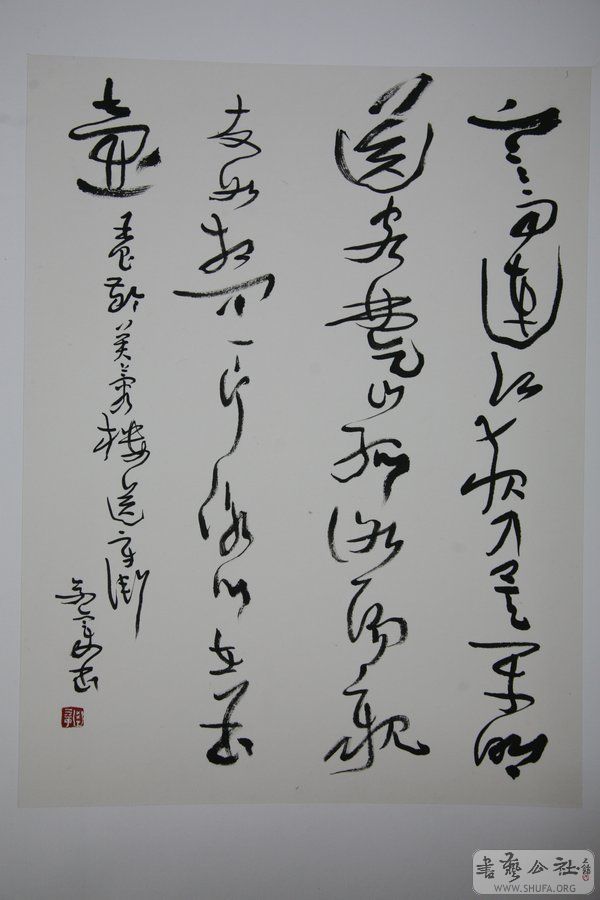 寒雨連江夜入吳平明
送客楚山孤洛陽親
友如相問一片冰心在玉
壺 王昌齡芙蓉樓送辛漸
書
書藝公社
WWW.SHUFA.ORG